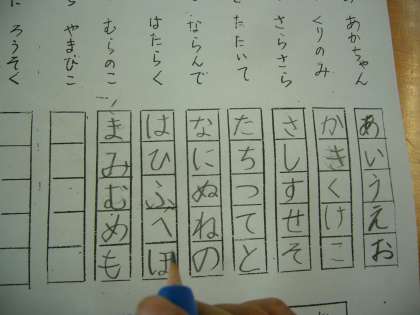 あかちゃん
くりのみ
さらさら
たたいて
ならんで
はたらく
むらのこ
やまびこ
ろうそく
あいうえお
かきくけこ
さしすせそ
たちつてと
なにぬねの
はひふへほ
まみむめも